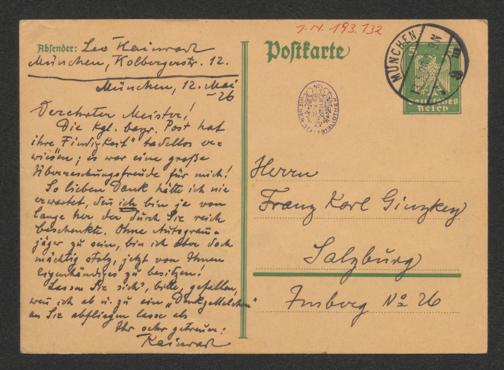 1.N. 193.132
Absender: Leo Kainradl
München, Kolbergerstr. 12.
Postkarte
MÜNCHEN
Deutsches
Reich
München, 12. Mai
26
Verehrter Meister!
Die kgl. bayr. Post hat
ihre "Findigkeit" tadellos er-
wiesen; es war eine große
Überraschungsfreude für mich!
So lieben Dank hätte ich nie
erwartet, denn ich bin ja von
lange her der durch Sie reich
beschenkte. Ohne Autogramm-
jäger zu sein, bin ich aber doch
mächtig stolz, jetzt von Ihnen
Eigenhändiges zu besitzen!
Lassen Sie sich's, bitte, gefallen,
wenn ich ab u. zu ein
an Sie abfliegen lasse als
Ihr sehr getreuer:
Kainradl
Herrn
Franz Karl Ginzkey
Salzburg
Imberg No 26